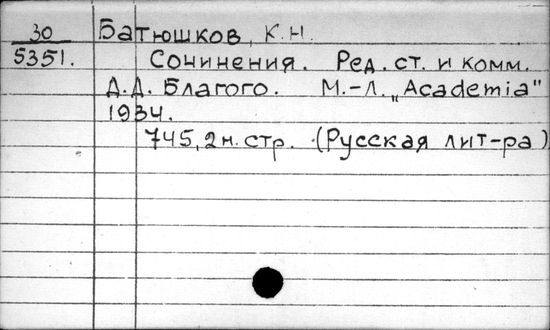 30 Батюшков, К.Н.
5351. Сочинения. Ред. ст. и комм.
Д.Д. Благого. М.-Л. „Academia"
1934.
745, 2 н. стр. (Русская лит-ра)